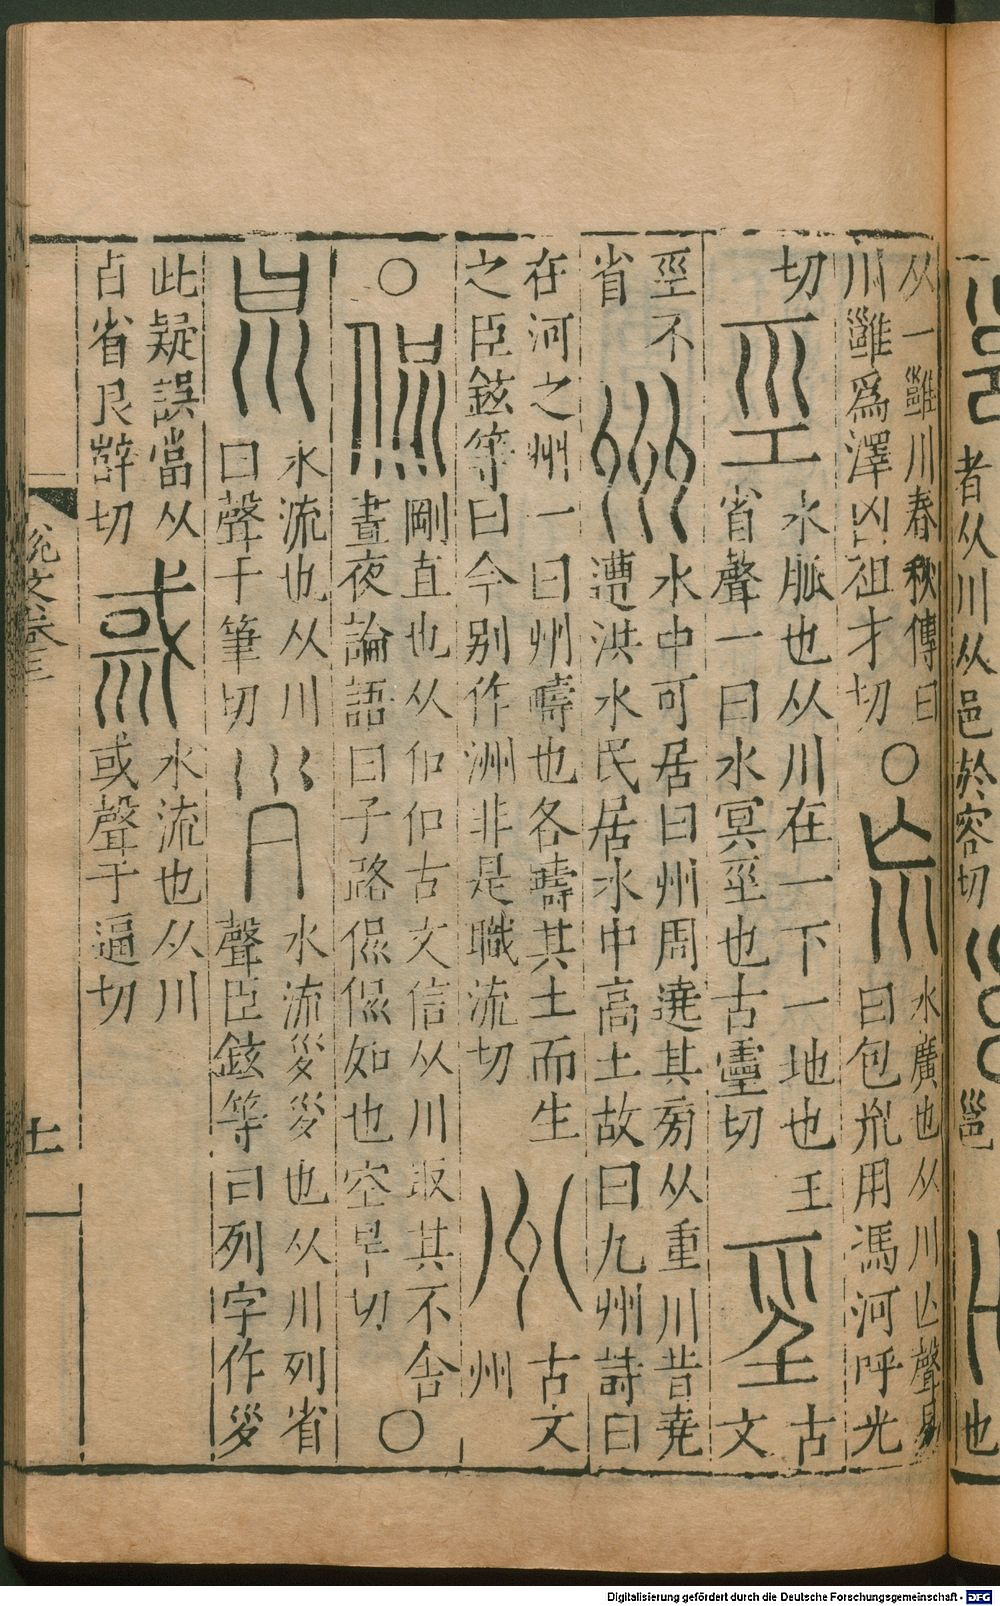 者从川从邑於容切
邕
也
从一雝川春秋傳曰
川雝爲澤凶祖才切
○
水廣也从川亡聲易
曰包巟用馮河呼光
切
水脈也从川在一下一地也壬
省聲一曰水冥巠也古靈切
古
文
巠不
省
水中可居曰州周遶其旁从重川昔堯
遭洪水民居水中高土故曰九州詩曰
在河之州一曰州疇也各疇其土而生
之臣鉉等曰今别作洲非是職流切
古文
州
○
剛直也从㐰㐰古文信从川取其不舎
晝夜論語曰子路侃侃如也空旱切
○
水流也从川
曰聲于筆切
水流𡿪𡿪也从川列省
聲臣鉉等曰列字作𡿪
此疑誤當从
歺省良辥切
水流也从川
或聲于逼切
說文卷三
十一
Digitalisierung gefördert durch die Deutsche Forschungsgemeinschaft - DFG